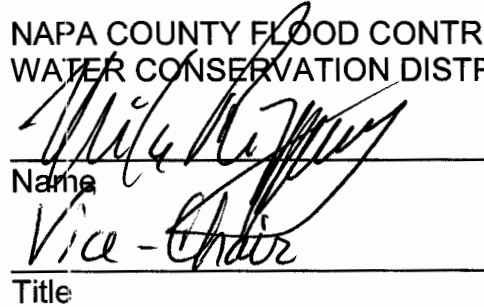 NAPA COUNTY FLOOD CONTR
WATER CONSERVATION DISTR
Name
Vice - Chair
Title